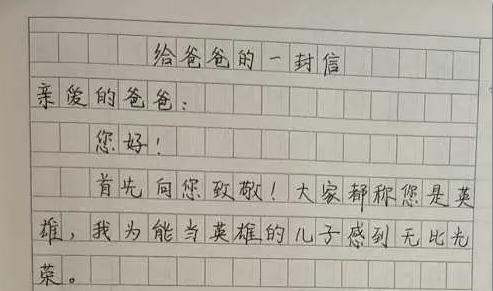 给爸爸的一封信
亲爱的爸爸：
您好！
首先向您致敬！大家都称您是英
雄，我为能当英雄的儿子感到无比光
荣。